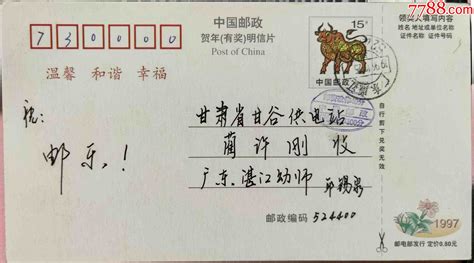 7788.com
中国邮政
贺年(有奖)明信片
Post of China
730000
温馨 和谐 幸福
15分
中国邮政
领奖人填写内容
姓名
地址或单位名称
证件名称
证件号码
祝:
邮乐!
甘肃省甘谷供电站
蔺许刚 收
广东湛江幼师 邱锡泉
邮政编码 524400
自行剪下兑奖无效
1997
邮电部发行 定价0.80元